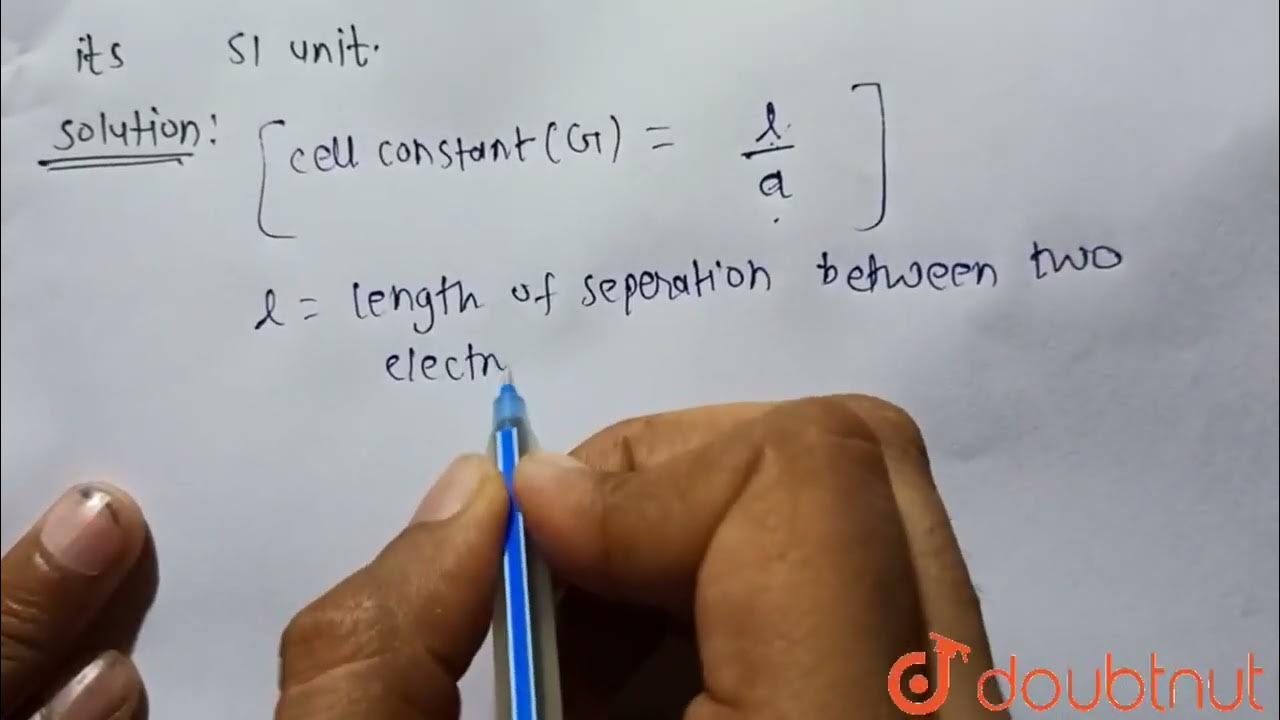 its SI unit.
solution: [cell constant (G) = l/a]
l = length of seperation between two
electr
doubtnut